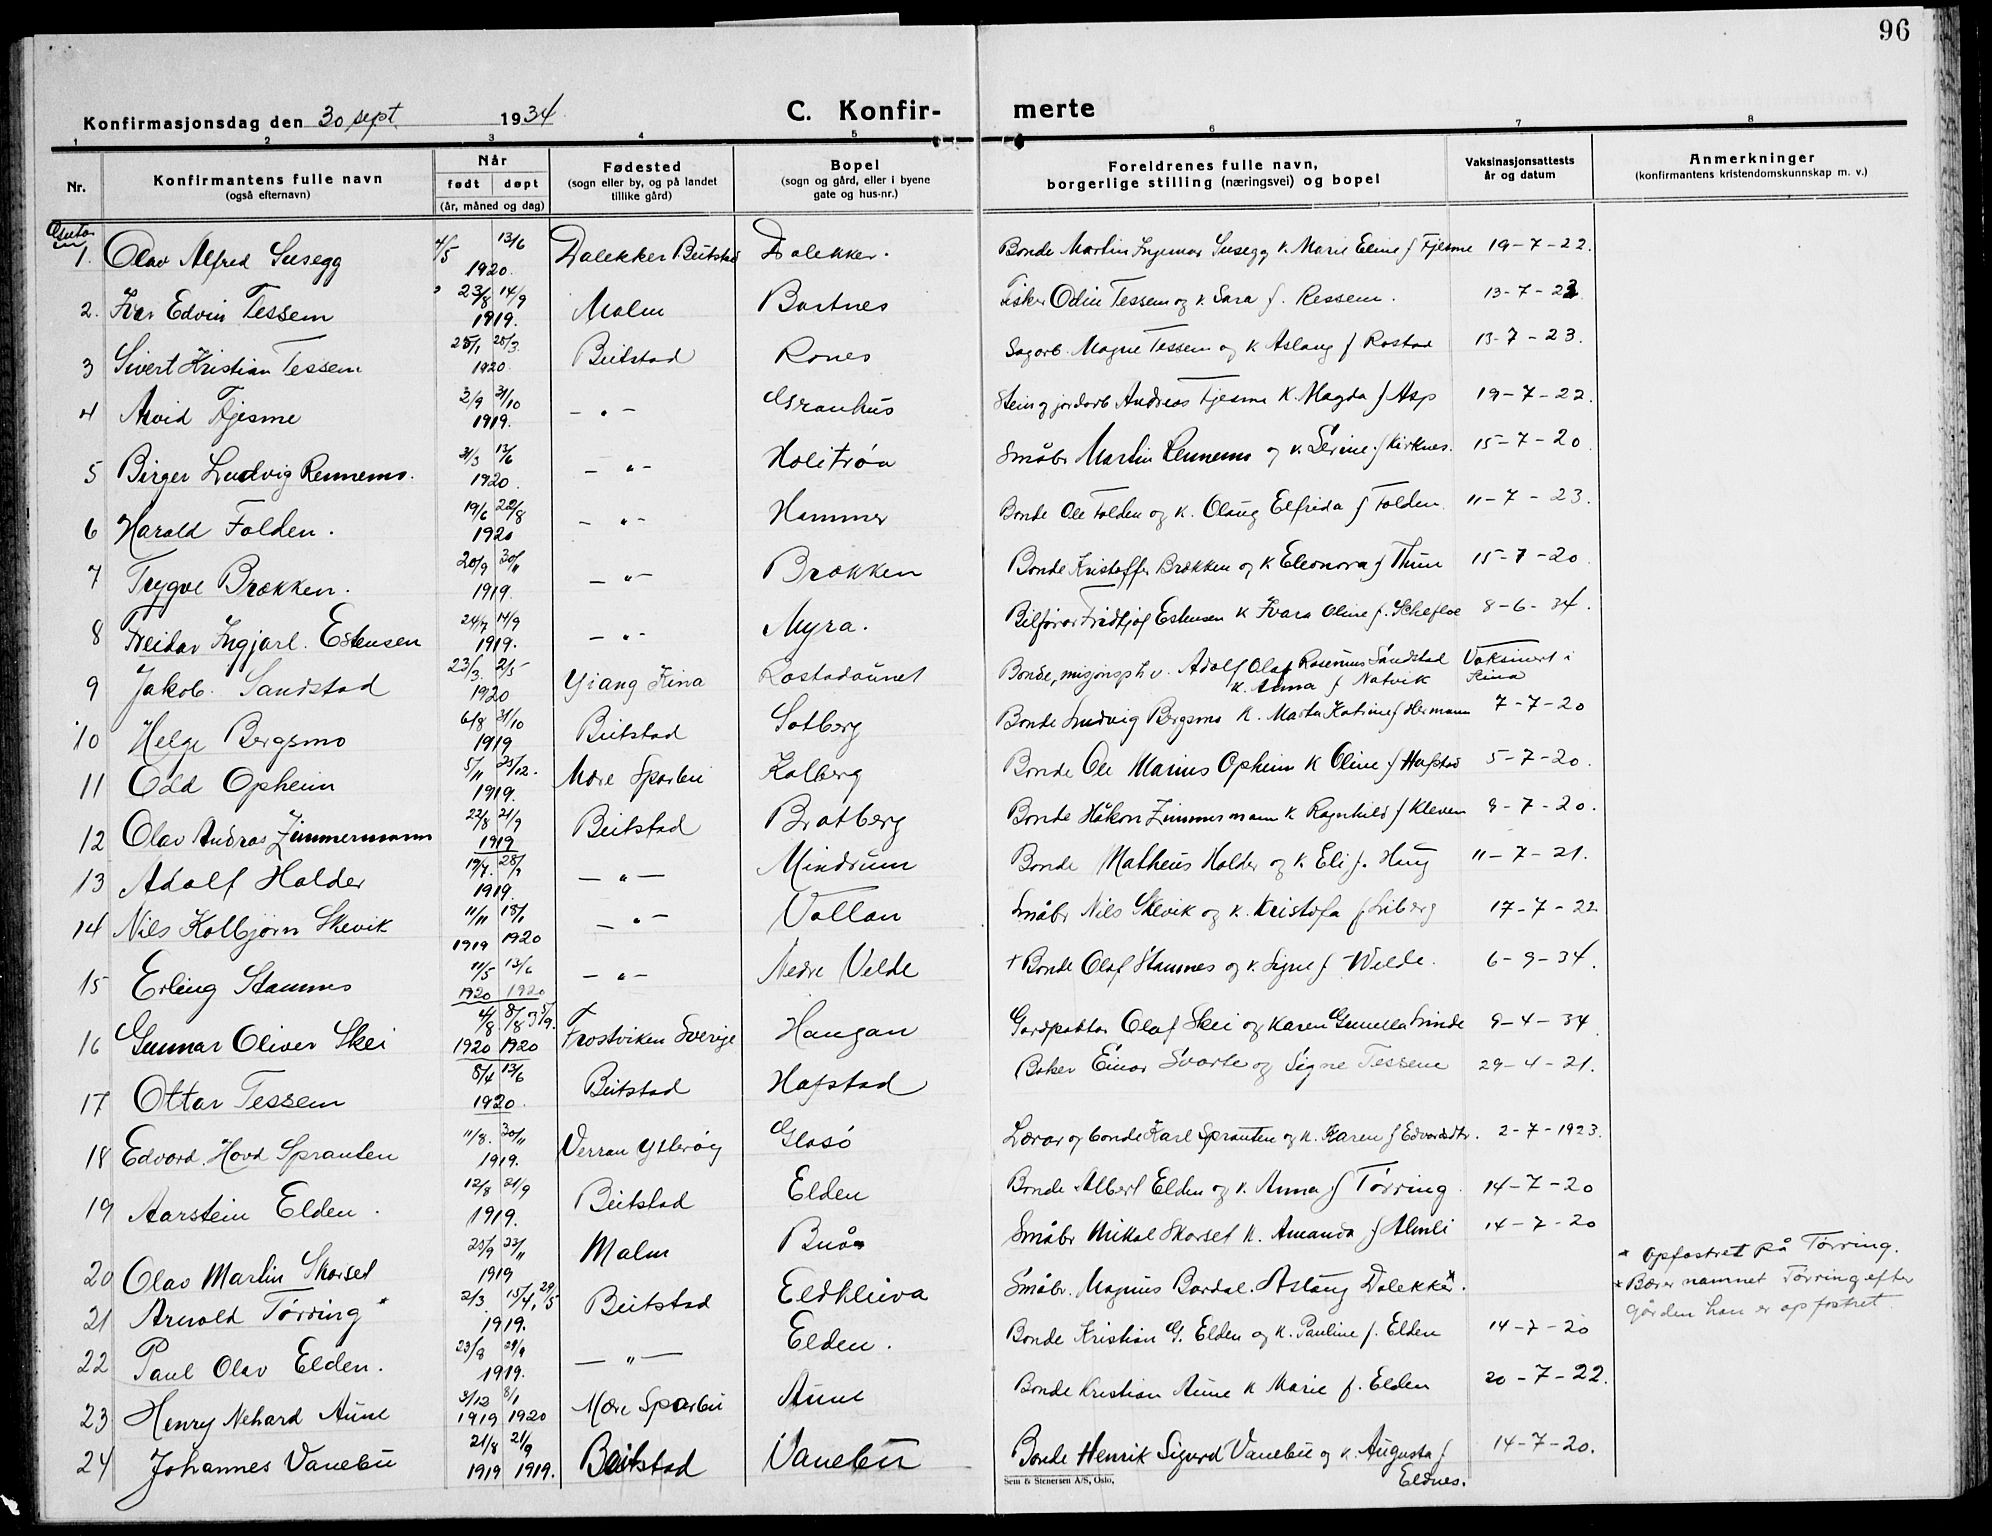 96
Konfirmasjonsdag den 30 sept. 1934 C. Konfir- merte
1 2 3 4 5 6 7 8
Nr. Konfirmantens fulle navn (også efternavn) Når født døpt (år, måned og dag) Fødested (sogn eller by, og på landet tillike gård) Bopel (sogn og gård, eller i byene gate og hus-nr.) Foreldrenes fulle navn, borgerlige stilling (næringsvei) og bopel Vaksinasjonsattests år og datum Anmerkninger (konfirmantens kristendomskunnskap m. v.)
1. Olav Alfred Susegg 4/5 13/6 1920. Dalekker Beitstad Dalekker. Bonde Martin Ingemar Susegg k. Marie Eline f Fjesme 19-7-22.
2. Ivar Edvin Tessem 23/8 14/9 1919. Malm Bartnes Fisker Odin Tessem og k Sara f. Ressem. 13-7-23.
3 Sivert Kristian Tessem 25/1 25/3 1920. Beitstad Rones Sagarb. Magne Tessem og k Aslaug f Rostad 13-7-23.
4 Arvid Fjesme 2/9 31/10 1919. - " - Granhus Stein og jordarb Andreas Fjesme k. Magda f Asp 19-7-22.
5 Birger Ludvig Rennemo. 31/3 13/6 1920. - " - Holitrøa Småbr Martin Rennemo og k. Serine f Kirknes. 15-7-20
6 Harald Folden. 19/6 22/8 1920 - " - Hammer Bonde Ole Folden og k. Olaug Elfrida f Folden. 11-7-23.
7 Trygve Brækken. 20/9 30/11 1919. - " - Brækken Bonde Kristoffer Brækken og k Eleonora f Thun 15-7-20.
8 Freidar Ingjarl. Estensen 24/7 14/9 1919. - " - Myra. Bilfører Fridtjof Estensen k Ivara Oline f. Schefloe 8-6-34.
9 Jakob. Sandstad 23/3 2/5 1920 Yiang Kina Rostadaunet Bonde, misjonsph. v. Adolf Olaf Rasmus Sandstad Vaksinert i
k. Anna f Natvik Kina
10 Helge Bergsmo 6/8 31/10 1919 Beitstad Solberg Bonde Ludvig Bergsmo k. Marta Katrine f Hermann 7-7-20
11 Odd Opheim 5/11 25/12. 1919. Mære Sparbu Kolberg Bonde Ole Marius Opheim k Oline f Hafstad 5-7-20.
12 Olav Andreas Zimmermann 22/8 21/9 1919 Beitstad Bratberg Bonde Håkon Zimmermann k Ragnhild f Kleven 9-7-20.
13 Adolf Holder 1919. - " - Mindrum Bonde Matheus Holder og k Eli f. Haug 11-7-21.
14 Nils Kolbjørn Skevik 11/11 18/1 1919 1920 - " - Vollan Småbr Nils Skevik og k. Kristofa f Liberg 17-7-22
15 Erling Stamnes 11/5 13/6 1920 1920 - " - Nedre Velde + Bonde Olaf Stamnes og k. Signe f Welde. 6-9-34.
16 Gunnar Oliver Skei 4/8 8/8 1920 1920 Frostviken Sverige Haugan Gardpakter Olaf Skei og Karen Gunella Sunde 9-4-34.
17 Ottar Tessem 8/4 13/6 1920. Beitstad Hafstad Baker Einar Svarte og Signe Tessem 29-4-21.
18 Edvard. Hovd Sprauten 11/8. 30/11 1919. Verran Ytterøy Glasø Lærar og bonde Karl Sprauten og k. Karen f Edvardsdtr. 2-7-1923.
19 Aarstein Elden. 12/8 21/9 1919. Beitstad Elden Bonde Albert Elden og k. Anna f Tørring. 14-7-20
20 Olav Martin Skarset 25/9 23/11 1919 Malm Buås Småbr Mikal Skarset k. Amanda f Almli 14-7-20
* Opfostret på Tørring.
21 Arnold Tørring* 2/3. 15/4, 29/5 1919. Beitstad Eldkleiva Småbr. Magnus Bardal. Aslaug Dalekker*.
* Bærer namnet Tørring efter
gården han er opfostret.
22 Paul Olav Elden. 23/8 1919. - " - Elden. Bonde Kristian G. Elden og k. Pauline f. Elden 14-7-20
23 Henry Nehard Aune 3/12 8/1 1919 1920 Mære Sparbu Aune Bonde Kristian Aune k Marie f. Elden 20-7-22.
24 Johannes Vanebu 21/8 21/9 1919 1919. Beitstad Vanebu Bonde Henrik Sigurd Vanebu og k. Augusta f 14-7-20.
Eldnes.
Sem & Stenersen A/S, Oslo.